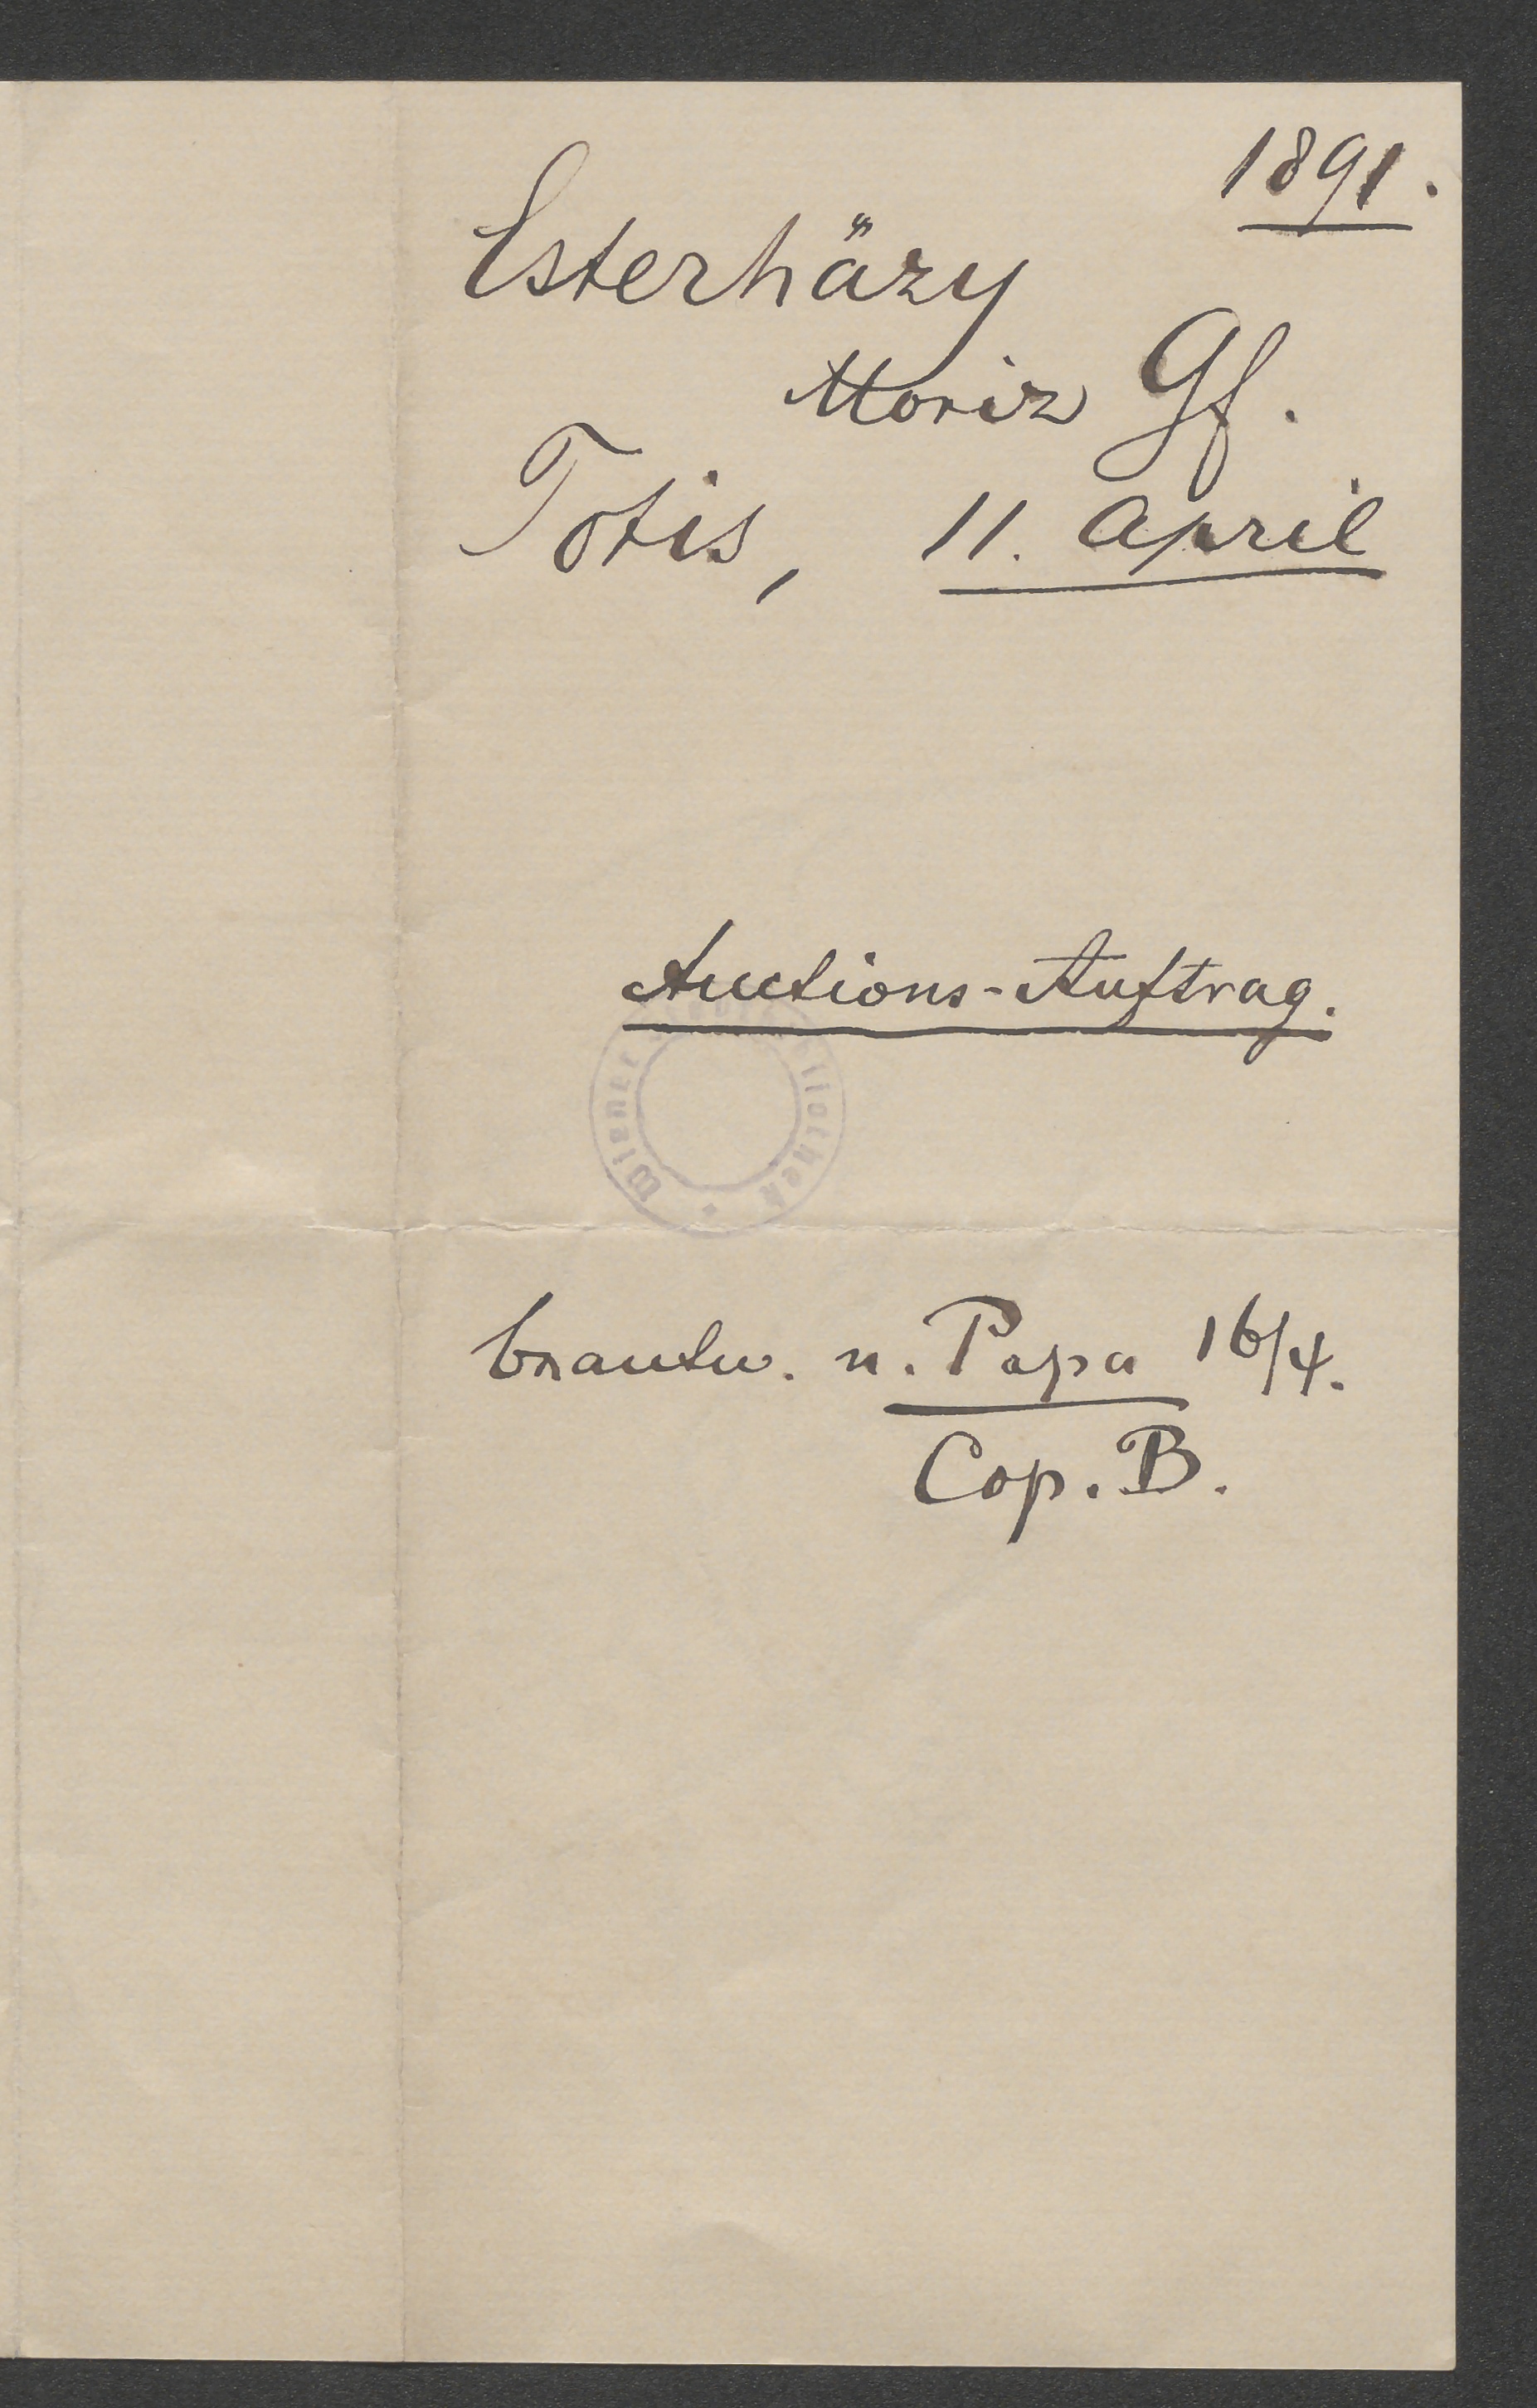 1891.
Esterházy
Moriz Gf.
Totis, 11. April
Auctions-Auftrag.
Wiener Stadtbibliothek
beantw. n. Papa 16/4.
Cop. B.